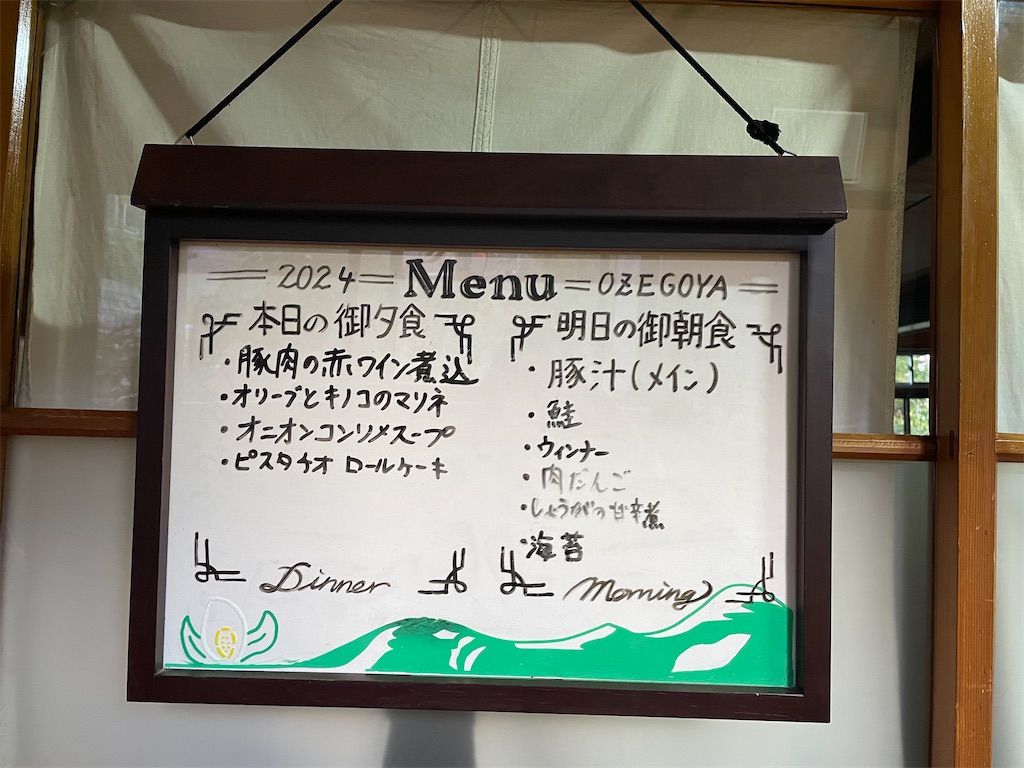 2024 Menu OZEGOYA
本日の御夕食
・豚肉の赤ワイン煮込
・オリーブとキノコのマリネ
・オニオンコンソメスープ
・ピスタチオ ロールケーキ
Dinner
明日の御朝食
・豚汁(メイン)
・鮭
・ウィンナー
・肉だんご
・しょうがの甘辛煮
・海苔
Morning